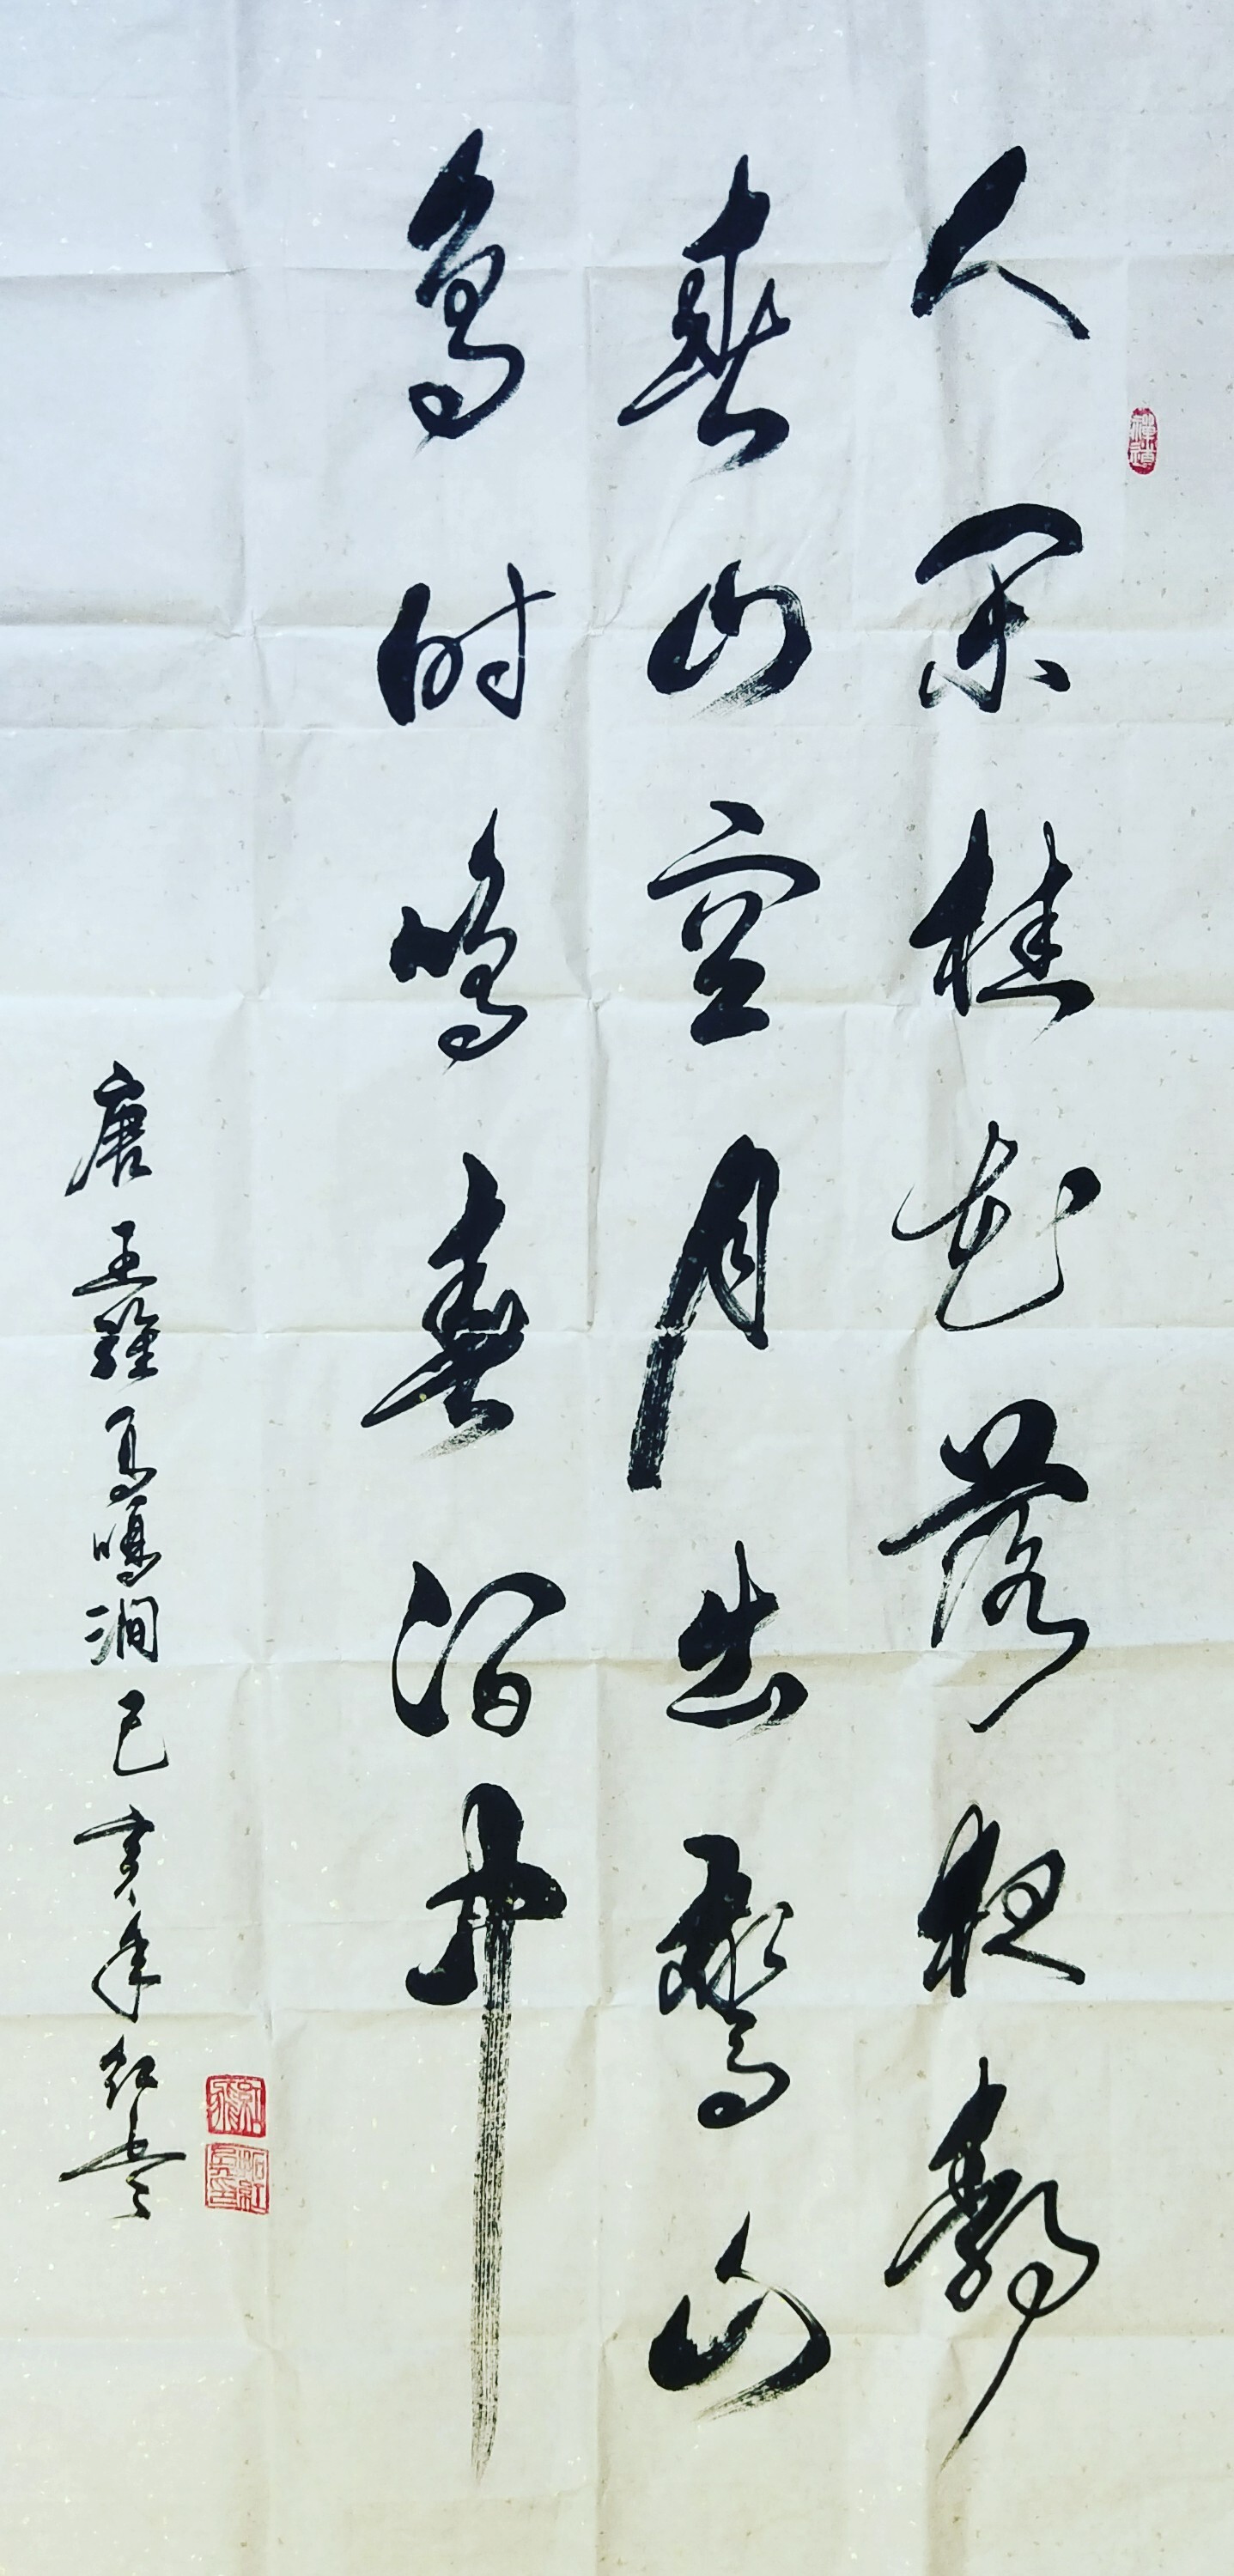 人闲桂花落夜静
春山空月出惊山
鸟时鸣春涧中
唐王維鸟鳴澗己亥年红兵